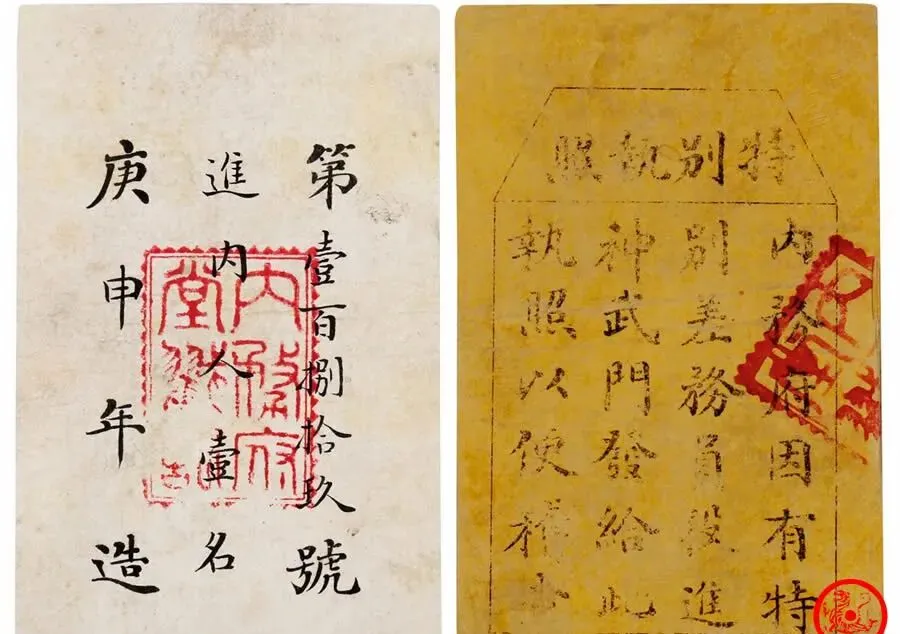 第壹百捌拾玖號
進內人壹名
庚申年造
內務府
堂
特別執照
內務府因有特
別差務員役進
神武門發給此
執照以便